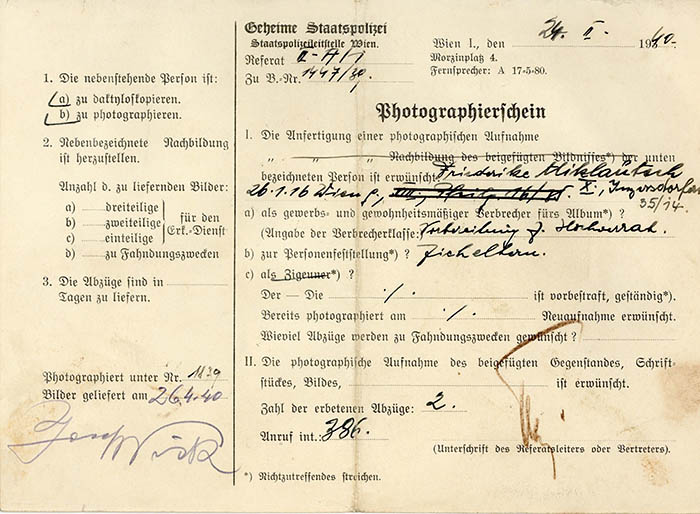 Geheime Staatspolizei
Staatspolizeileitstelle Wien.
Referat II-A/1
Zu B.-Nr. 1447/39.
Wien I., den 24. II. 1940.
Morzinplatz 4.
Fernsprecher: A 17-5-80.
1. Die nebenstehende Person ist:
a) zu daktyloskopieren.
b) zu photographieren.
2. Nebenbezeichnete Nachbildung
ist herzustellen.
Anzahl d. zu liefernden Bilder:
a) dreiteilige
b) zweiteilige
c) einteilige
für den
Erk.-Dienst
d) zu Fahndungszwecken
3. Die Abzüge sind in
Tagen zu liefern.
Photographiert unter Nr. 1139
Bilder geliefert am 26.4.40
Photographierschein
I. Die Anfertigung einer photographischen Aufnahme
„ „ „ Nachbildung des beigefügten Bildnisses*) der unten
bezeichneten Person ist erwünscht. Friederike Miklautsch
26.1.16 Wien geb., X., Inzersdorferstr.
35/14.
a) als gewerbs- und gewohnheitsmäßiger Verbrecher fürs Album*) ?
(Angabe der Verbrecherklasse: Vorbereitung z. Hochverrat.
b) zur Personenfeststellung*) ?
c) als Zigeuner*) ?
Der — Die ·/· ist vorbestraft, geständig*).
Bereits photographiert am ·/· Neuaufnahme erwünscht.
Wieviel Abzüge werden zu Fahndungszwecken gewünscht ?
II. Die photographische Aufnahme des beigefügten Gegenstandes, Schrift-
stückes, Bildes, ist erwünscht.
Zahl der erbetenen Abzüge: 2.
Anruf int.: 386.
(Unterschrift des Referatsleiters oder Vertreters).
*) Nichtzutreffendes streichen.